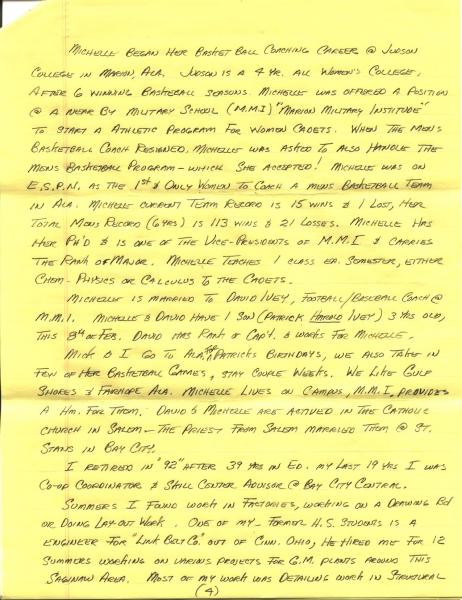 MICHELLE BEGAN HER BASKETBALL COACHING CAREER @ JUDSON
COLLEGE IN MARION, ALA. JUDSON IS A 4 YR. ALL WOMEN'S COLLEGE,
AFTER 6 WINNING BASKETBALL SEASONS. MICHELLE WAS OFFERED A POSITION
@ A NEAR BY MILITARY SCHOOL (M.M.I) "MARION MILITARY INSTITUDE"
TO START A ATHLETIC PROGRAM FOR WOMEN CADETS. WHEN THE MENS
BASKETBALL COACH RESIGNED, MICHELLE WAS ASKED TO ALSO HANDLE THE
MENS BASKETBALL PROGRAM - WHICH SHE ACCEPTED! MICHELLE WAS ON
E.S.P.N. AS THE 1ST & ONLY WOMEN TO COACH A MENS BASKETBALL TEAM
IN ALA. MICHELLE CURRENT TEAM RECORD IS 15 WINS & 1 LOST, HER
TOTAL MENS RECORD (6 YRS) IS 113 WINS & 21 LOSSES. MICHELLE HAS
HER PH'D & IS ONE OF THE VICE-PRESIDENTS OF M.M.I & CARRIES
THE RANK OF MAJOR. MICHELLE TEACHES 1 CLASS EA. SEMESTER, EITHER
CHEM - PHYSICS OR CALCULUS TO THE CADETS.
MICHELLE IS MARRIED TO DAVID IVEY, FOOTBALL/BASEBALL COACH @
M.M.I. MICHELLE & DAVID HAVE 1 SON (PATRICK HAROLD IVEY) 3 YRS OLD,
THIS 8TH OF FEB. DAVID HAS RANK OF CAP'T. & WORKS FOR MICHELLE.
MICK & I GO TO ALA, FOR PATRICKS BIRTHDAYS, WE ALSO TAKE IN
FEW OF HER BASKETBALL GAMES, & STAY COUPLE WEEKS. WE LIKE GULF
SHORES & FAIRHOPE ALA. MICHELLE LIVES ON CAMPUS, M.M.I, PROVIDES
A HM. FOR THEM. DAVID & MICHELLE ARE ACTIVED IN THE CATHOLIC
CHURCH IN SALEM - THE PRIEST FROM SALEM MARRIED THEM @ ST.
STANS IN BAY CITY.
I RETIRED IN "92" AFTER 39 YRS IN ED. MY LAST 19 YRS I WAS
CO-OP COORDINATOR & SKILL CENTER ADVISOR @ BAY CITY CENTRAL.
SUMMERS I FOUND WORK IN FACTORIES, WORKING ON A DRAWING BD
OR DOING LAY-OUT WORK. ONE OF MY - FORMER H.S. STUDENTS IS A
ENGINEER FOR "LINK BELT CO." OUT OF CINN. OHIO, HE HIRED ME FOR 12
SUMMERS WORKING ON VARIOUS PROJECTS FOR G.M. PLANTS AROUND THIS
SAGINAW AREA. MOST OF MY WORK WAS DETAILING WORK IN STRUCTURAL
(4)